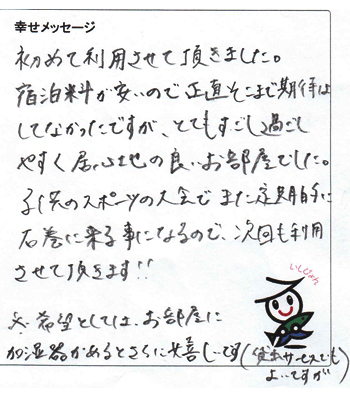 幸せメッセージ
初めて利用させて頂きました。
宿泊料が安いので正直そこまで期待は
してなかったですが、とてもすごし過ごし
やすく居心地の良いお部屋でした。
子供のスポーツの大会でまた定期的に
石巻に来る事になるので、次回も利用
させて頂きます!!
いしぴょん
※希望としては、お部屋に
加湿器があるとさらに嬉しいです(貸出サービスでも
よいですが)